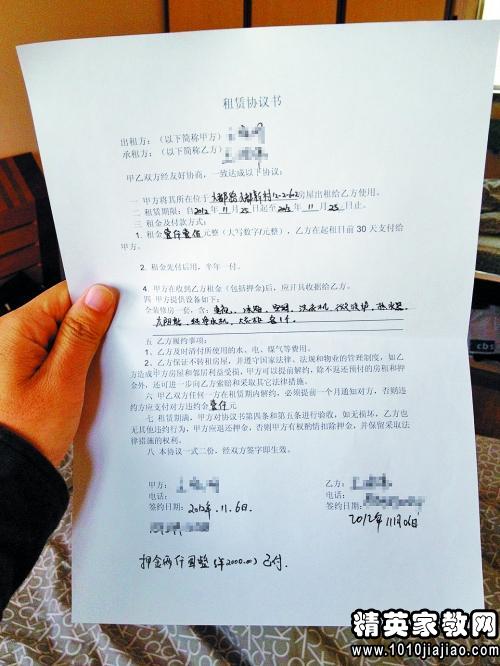 租赁协议书
出租方：（以下简称甲方）
承租方：（以下简称乙方）
甲乙双方经友好协商，一致达成以下协议：
一 甲方将其所在位于 新村12-2-602房屋出租给乙方使用。
二 租赁期限：自2012年11月25日起至 年11月25日止。
三 租金及付款方式：
1. 租金壹仟壹佰元整（大写数字/元整），乙方在起租日前30天支付给
甲方。
2. 租金先付后用，半年一付。
4. 甲方在收到乙方租金（包括押金）后，应开具收据给乙方。
四 甲方提供设备如下：
全装修房一套，含： 冰箱，空调，洗衣机，微波炉，热水器
各1个。
五 乙方履约事项：
1、乙方及时清付所使用的水、电、煤气等费用。
2、乙方保证不转租房屋，并遵守国家法律、法规和物业的管理制度，如乙
方造成甲方房屋和邻居利益受损，甲方可以提前解约，除不退还预付的房租和押
金外，还可进一步向乙方索赔和采取其它法律措施。
六 甲乙双方任何一方在租赁期内解约，必须提前一个月通知对方，否则违
约方应支付对方违约金壹仟元
七 租赁期满，甲方对协议书第四条和第五条进行验收，如无损坏，乙方也
无其他违约行为，甲方应退还押金，否则甲方有权酌情扣除押金，并保留采取法
律措施的权利。
八 本协议一式二份，经双方签字即生效。
甲方：
电话：
签约日期：2012年.11.6日.
乙方：
电话：
签约日期：
2012年11月06日
押金两仟圆整（¥2000.00）已付.
cbs
精英家教网
www.1010jiajiao.com